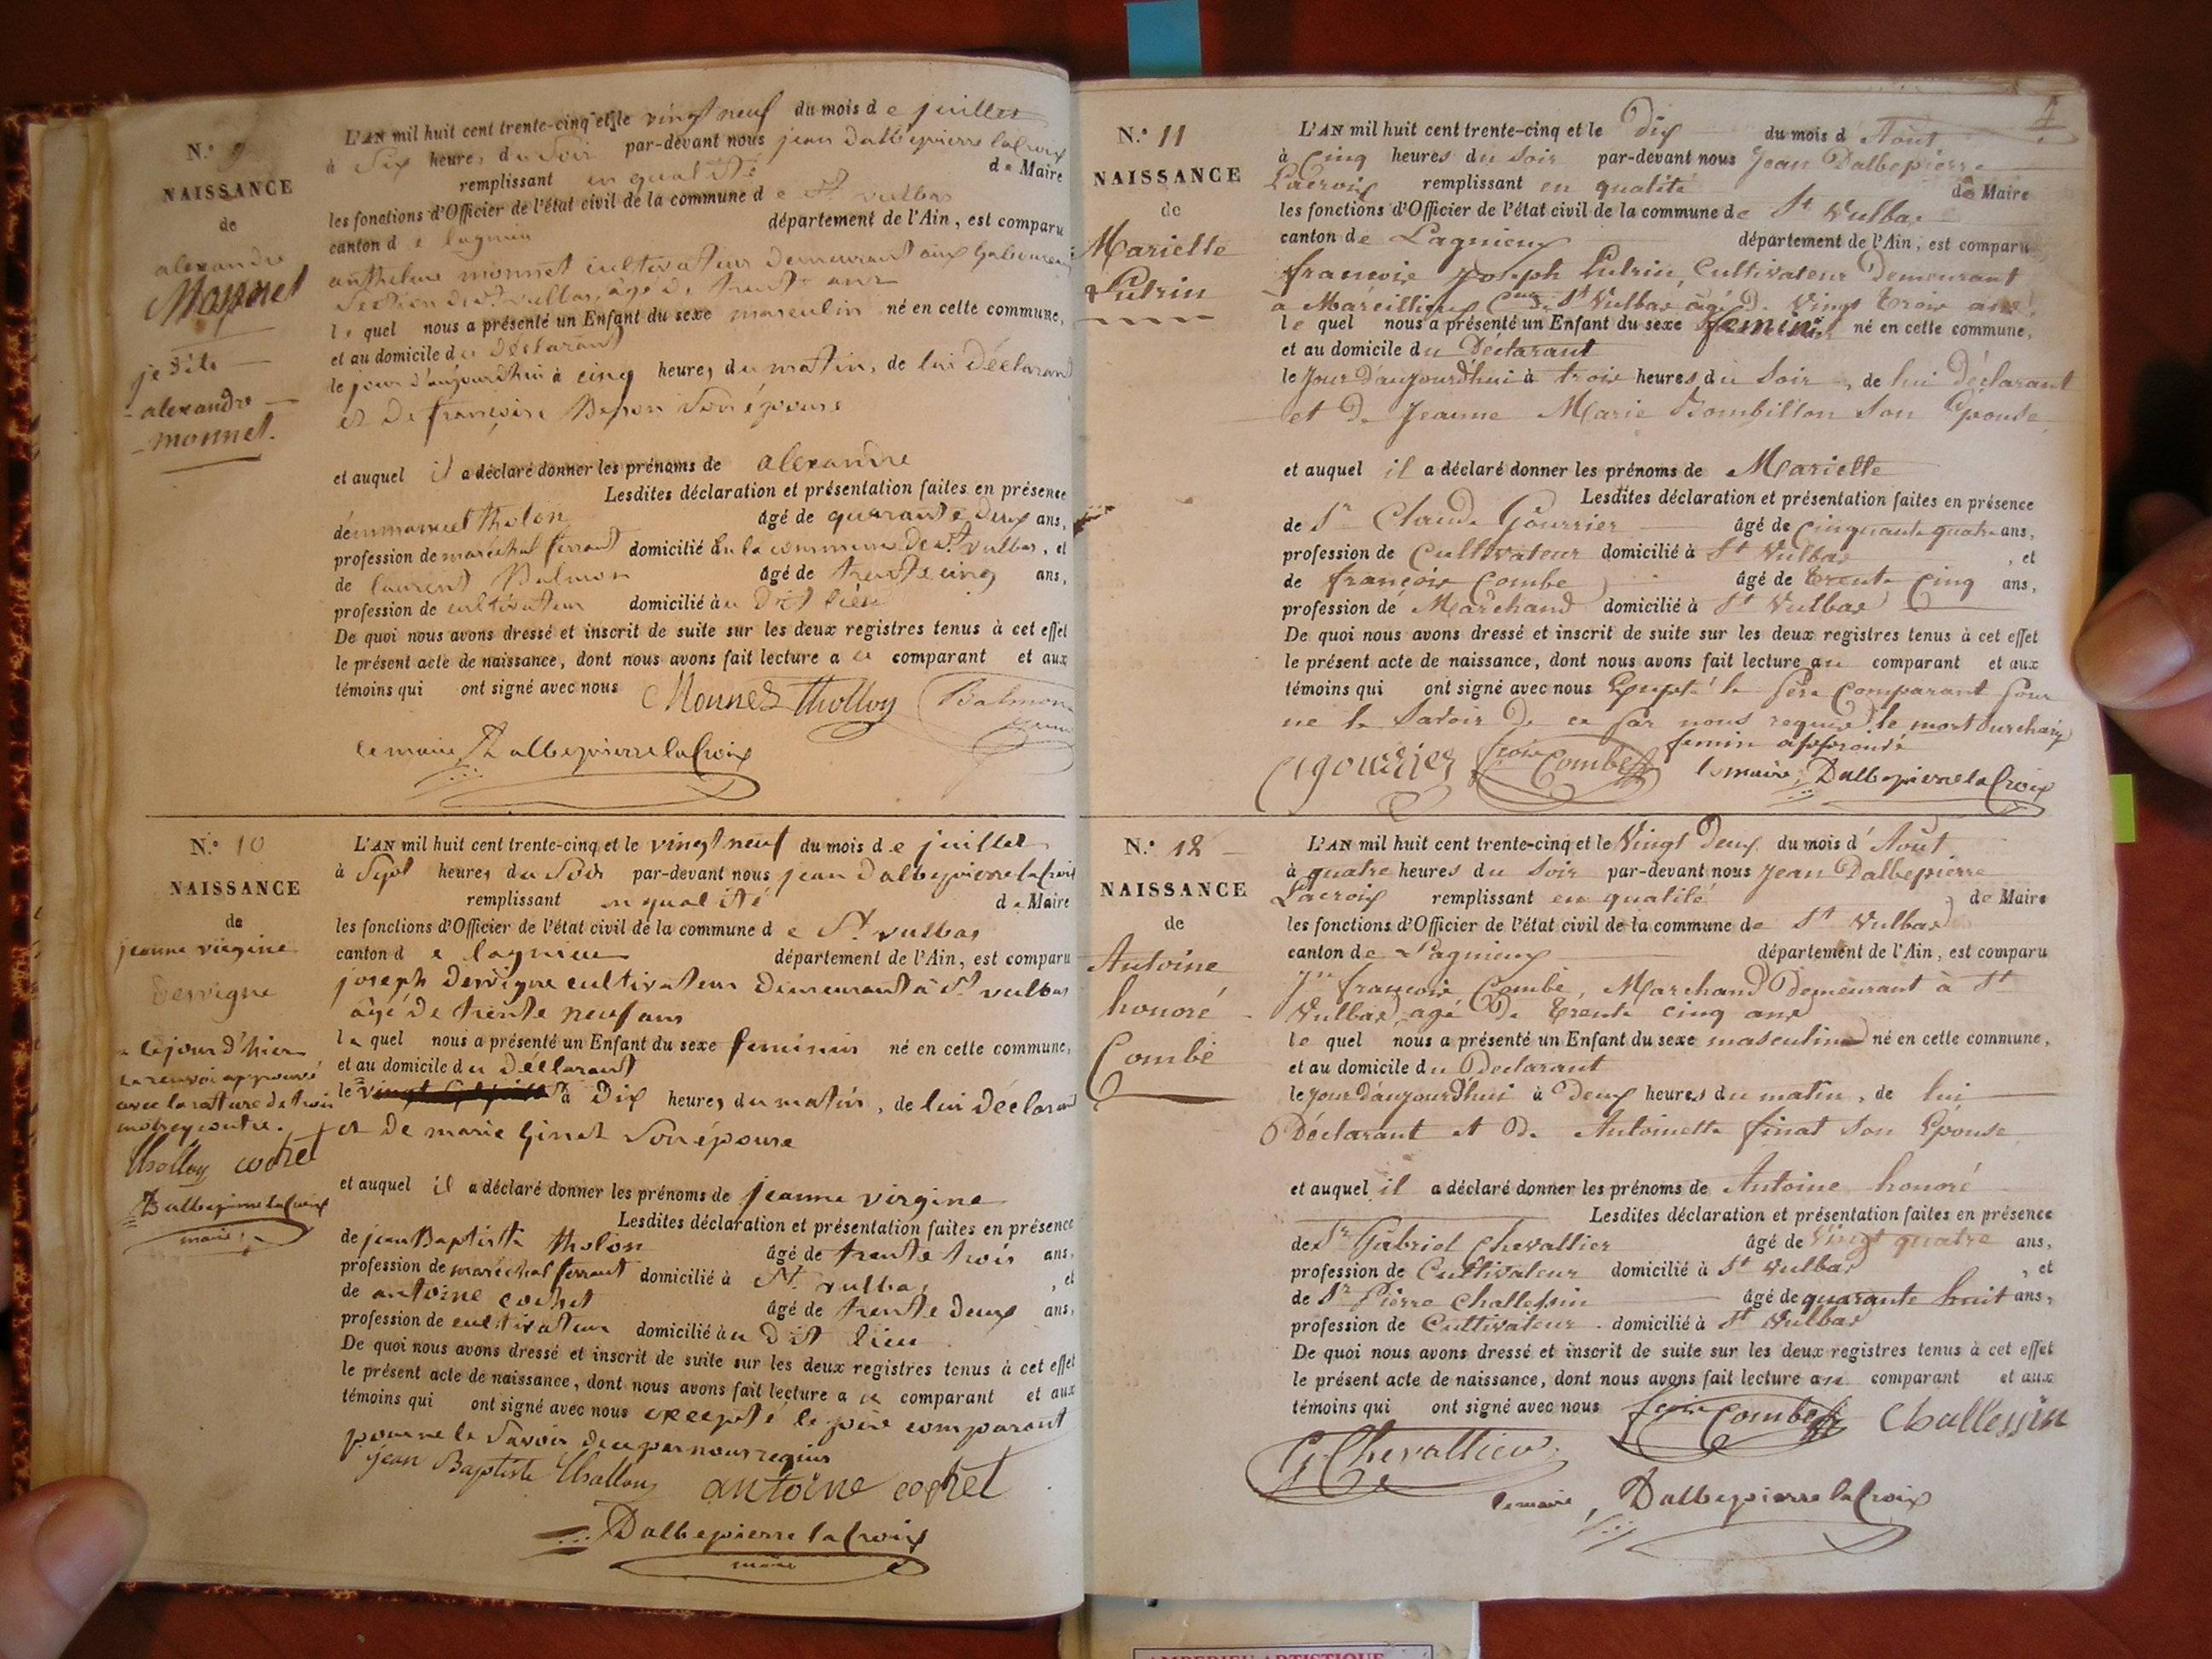 N.° 9
NAISSANCE
de
alexandre
Monnet
je dis
alexandre
monnet.
L'AN mil huit cent trente-cinq et le vingt neuf du mois d e juillet
à Six heures du Soir par-devant nous jean Dalbepierre laCroix
remplissant en qualité de Maire
les fonctions d'Officier de l'état civil de la commune d e St vulbas
canton d e lagnieu département de l'Ain, est comparu
anthelme monnet cultivateur demeurant aux
Section de St vulbas, âgé de trente ans
le quel nous a présenté un Enfant du sexe masculin né en cette commune,
et au domicile du Déclarant
le jour d'aujourd'hui à cinq heures du matin, de lui Déclarant
et De françoise Son épouse
et auquel il a déclaré donner les prénoms de alexandre
Lesdites déclaration et présentation faites en présence
d'emmanuel tholon âgé de quarante deux ans,
profession de maréchal ferrant domicilié en la commune de St vulbas, et
de laurent Balmon âgé de trente cinq ans,
profession de cultivateur domicilié au Dit lieu
De quoi nous avons dressé et inscrit de suite sur les deux registres tenus à cet effet
le présent acte de naissance, dont nous avons fait lecture a ce comparant et aux
témoins qui ont signé avec nous Monnet Tholloy Balmon
le maire, DalbepierrelaCroix
N.° 10
NAISSANCE
de
jeanne virgine
Dervigne
le jour d'hier
le renvoi approuvé
avec la rature de trois
mots ci contre.
Tholloy cochet
DalbepierrelaCroix
maire
L'AN mil huit cent trente-cinq et le vingt neuf du mois d e juillet
à Sept heures du Soir par-devant nous jean DalbepierrelaCroix
remplissant en qualité de Maire
les fonctions d'Officier de l'état civil de la commune d e St vulbas
canton d e lagnieu département de l'Ain, est comparu
joseph Dervigne cultivateur Demeurant à St vulbas
âgé de trente neuf ans
le quel nous a présenté un Enfant du sexe feminin né en cette commune,
et au domicile du déclarant
le à Dix heures du matin, de lui Déclarant
et De marie Ginet Son épouse
et auquel il a déclaré donner les prénoms de jeanne virgine
Lesdites déclaration et présentation faites en présence
de jean Baptiste tholon âgé de trente trois ans,
profession de maréchal ferrant domicilié à St vulbas, et
de antoine cochet âgé de trente deux ans,
profession de cultivateur domicilié au Dit lieu
De quoi nous avons dressé et inscrit de suite sur les deux registres tenus à cet effet
le présent acte de naissance, dont nous avons fait lecture a ce comparant et aux
témoins qui ont signé avec nous excepté le père comparant
pour ne le Savoir de ce par nous requis
jean Baptiste Tholloy antoine cochet
Dalbepierre laCroix
maire
4
N.° 11
NAISSANCE
de
Marielle
Putrin
L'AN mil huit cent trente-cinq et le Dix du mois d'Août
à Cinq heures du soir par-devant nous Jean Dalbepierre
Lacroix remplissant en qualité de Maire
les fonctions d'Officier de l'état civil de la commune de St Vulbas
canton de Lagnieux département de l'Ain, est comparu
françois Joseph Putrin, Cultivateur Demeurant
à Mareillieux Cne de St Vulbas âgé de Vingt trois ans
le quel nous a présenté un Enfant du sexe féminin né en cette commune,
et au domicile du Déclarant
le Jour d'aujourd'hui à trois heures du soir, de lui Déclarant
et de Jeanne Marie Bombillon son Epouse
et auquel il a déclaré donner les prénoms de Marielle
Lesdites déclaration et présentation faites en présence
de Sr Claude Gourrier âgé de Cinquante quatre ans,
profession de Cultivateur domicilié à St Vulbas, et
de françois Combe âgé de trente Cinq ans,
profession de Marchand domicilié à St Vulbas
De quoi nous avons dressé et inscrit de suite sur les deux registres tenus à cet effet
le présent acte de naissance, dont nous avons fait lecture au comparant et aux
témoins qui ont signé avec nous Excepté le père Comparant pour
ne le Savoir De ce par nous requis le mot surchargé
femin approuvé
Cgourrier fcois Combe le maire, Dalbepierre la Croix
N.° 12
NAISSANCE
de
Antoine
honoré
Combe
L'AN mil huit cent trente-cinq et le Vingt Deux du mois d'Août
à quatre heures du soir par-devant nous Jean Dalbepierre
Lacroix remplissant en qualité de Maire
les fonctions d'Officier de l'état civil de la commune de St Vulbas
canton de Lagnieux département de l'Ain, est comparu
françois Combe, Marchand Demeurant à St
Vulbas âgé De trente cinq ans
le quel nous a présenté un Enfant du sexe masculin né en cette commune,
et au domicile du Déclarant
le jour d'aujourd'hui à Deux heures du matin, de lui
Déclarant et De Antoinette finat son Epouse
et auquel il a déclaré donner les prénoms de Antoine honoré
Lesdites déclaration et présentation faites en présence
de Sr Gabriel Chevallier âgé de Vingt quatre ans,
profession de Cultivateur domicilié à St Vulbas, et
de Sr Pierre Challessin âgé de quarante huit ans,
profession de Cultivateur domicilié à St Vulbas
De quoi nous avons dressé et inscrit de suite sur les deux registres tenus à cet effet
le présent acte de naissance, dont nous avons fait lecture au comparant et aux
témoins qui ont signé avec nous fcois Combe Challessin
G Chevallier
le maire, Dalbepierre la Croix
AMBERIEU ARTISTIQUE